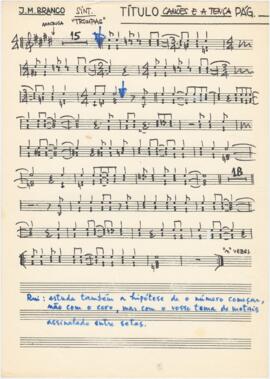 J.M. BRANCO SINT. TÍTULO CAMÕES E A TENÇA PÁG.
MADRUGA "TROMPAS"
15
18
"n" VEZES
Rui: estuda também a hipótese de o número começar,
não com o coro, mas com o vosso tema de metais
assinalado entre setas.